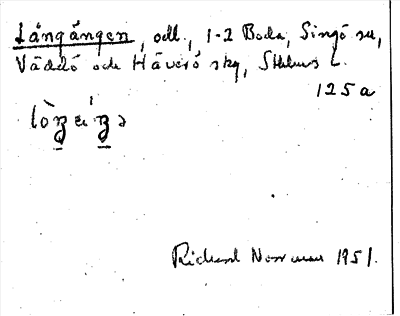 Långängen, odl., 1-2 Boda, Singö sn,
Väddö och Häverö skg, Sthlms l.
125 a
Richard Norrman 1951.